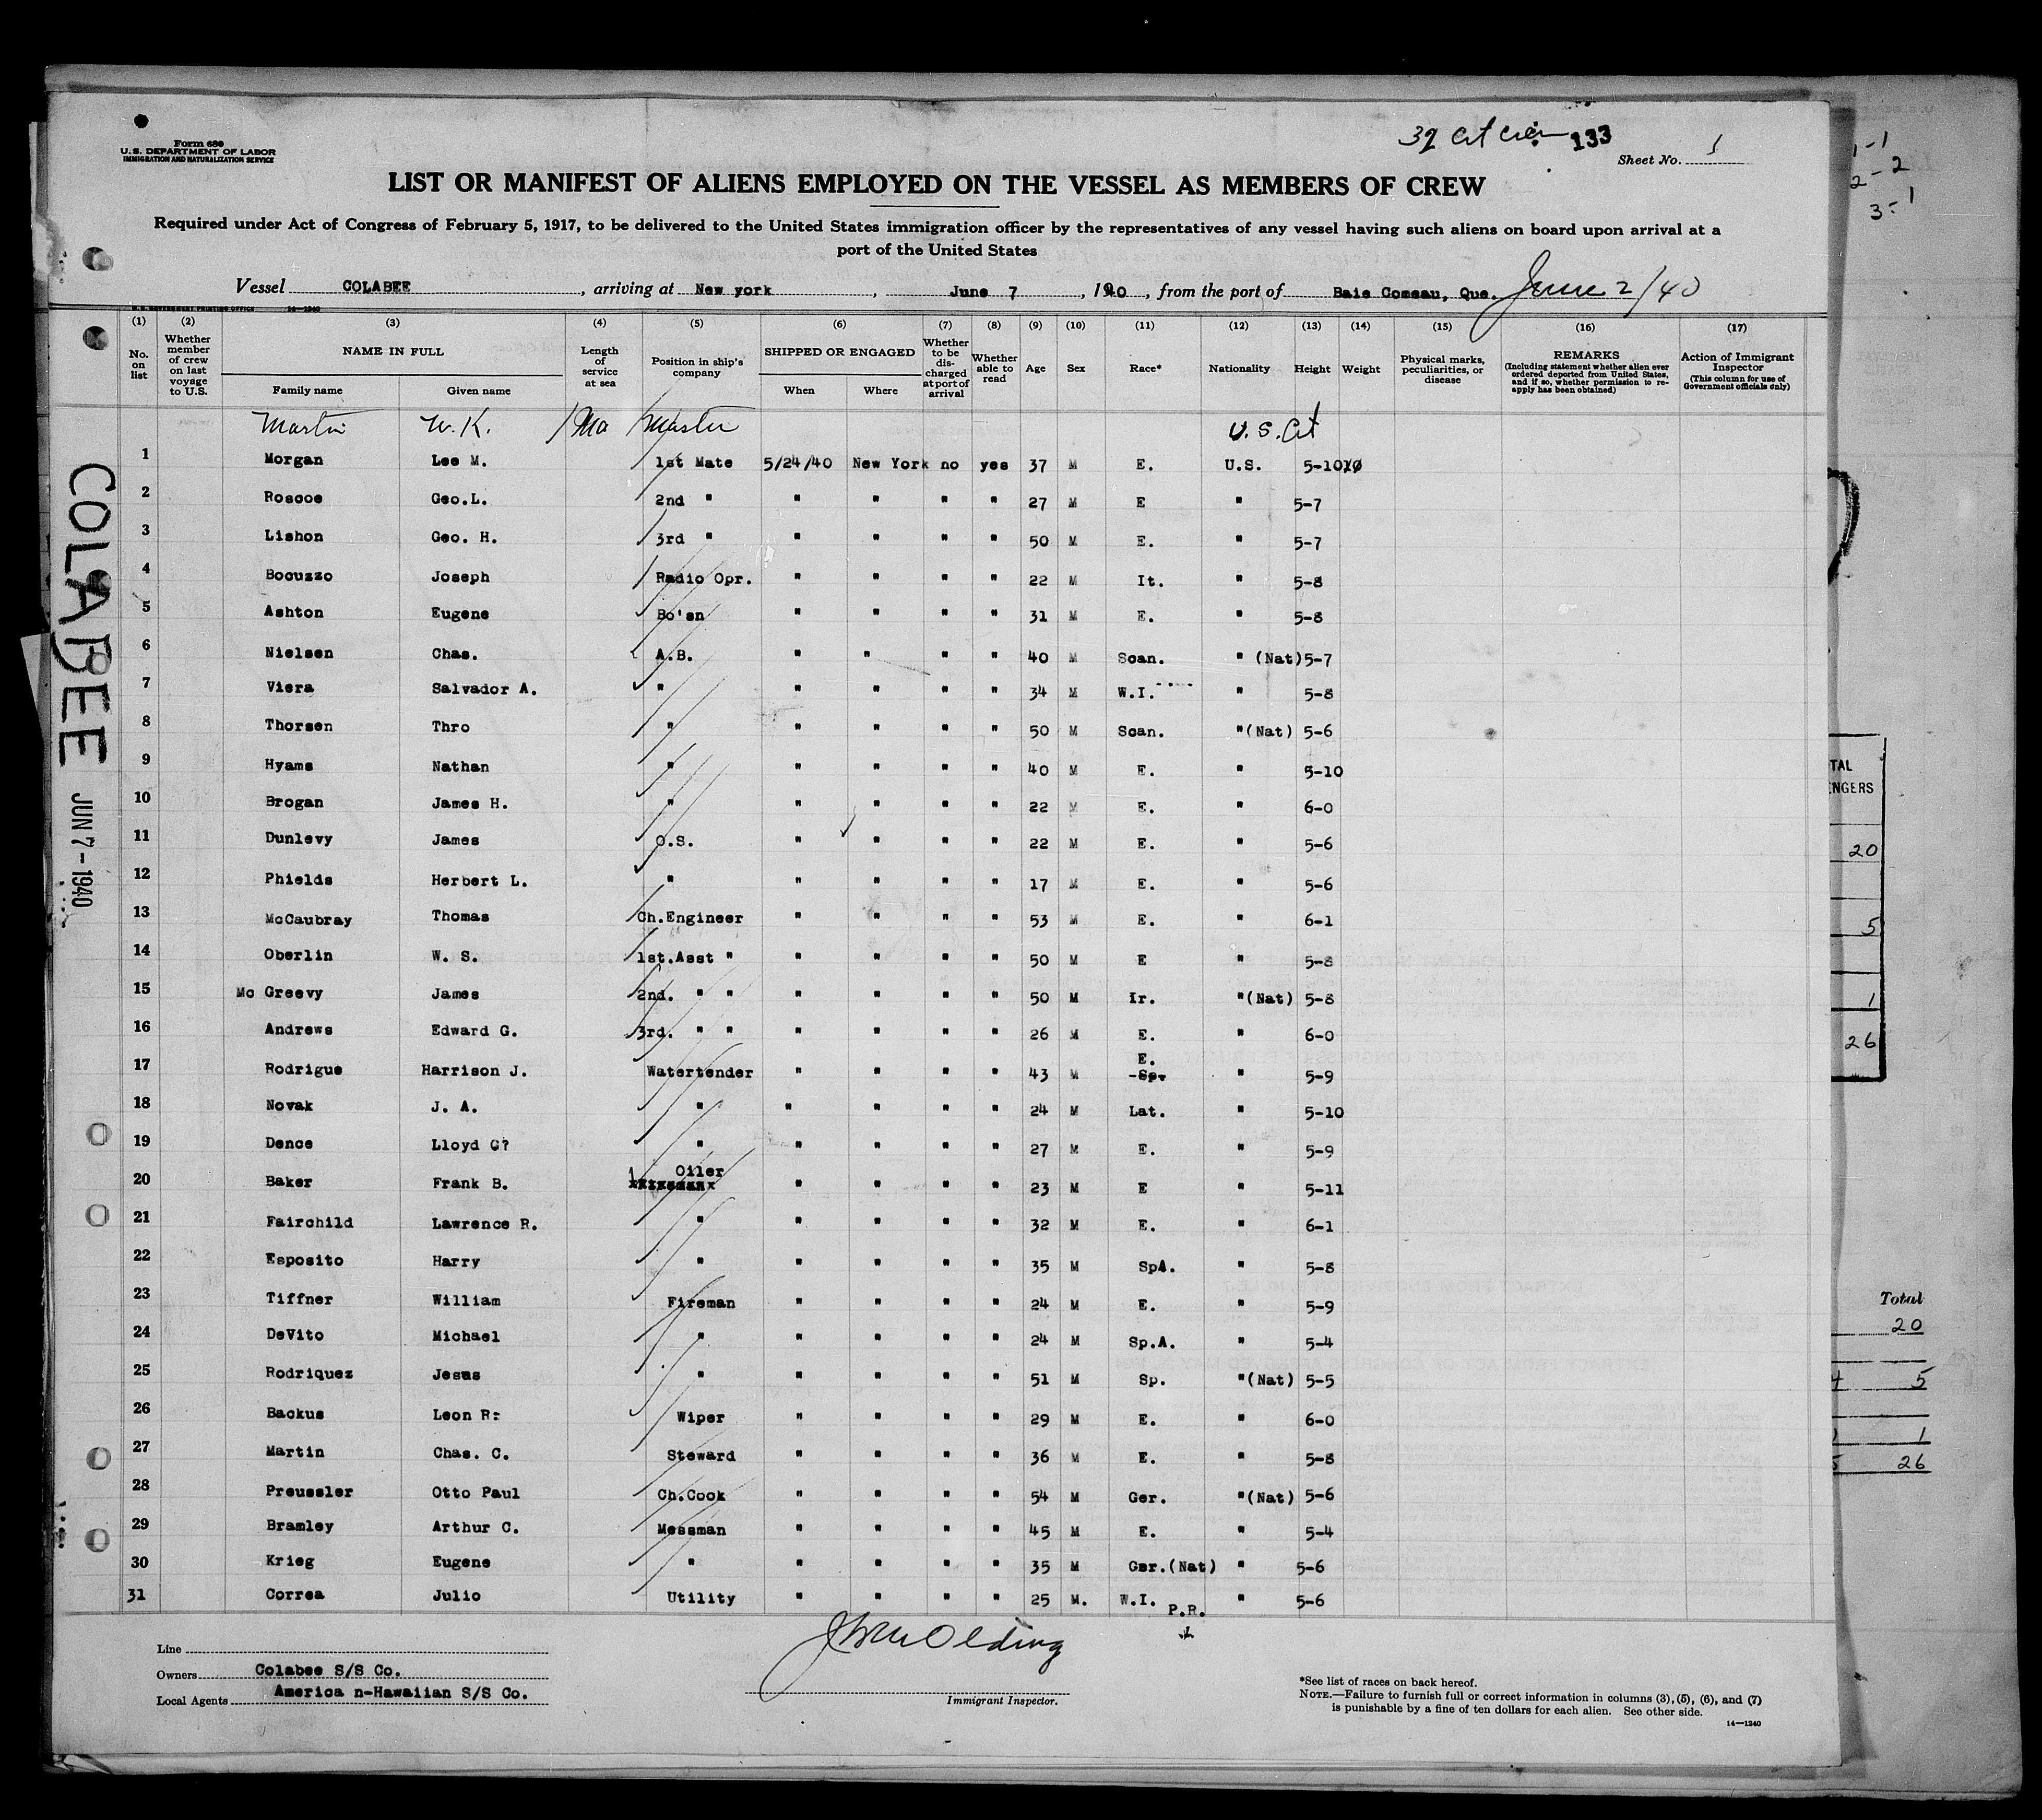 Form 680
U.S. DEPARTMENT OF LABOR
IMMIGRATION AND NATURALIZATION SERVICE
133
Sheet No. 1
LIST OR MANIFEST OF ALIENS EMPLOYED ON THE VESSEL AS MEMBERS OF CREW
Required under Act of Congress of February 5, 1917, to be delivered to the United States immigration officer by the representatives of any vessel having such aliens on board upon arrival at a
port of the United States
Vessel COLABEE, arriving at New york, June 7, 1940, from the port of Baie Comeau, Que. June 2/40
U.S. GOVERNMENT PRINTING OFFICE 14—1240
(1) No. on list
(2) Whether member of crew on last voyage to U.S.
(3) NAME IN FULL Family name Given name
(4) Length of service at sea
(5) Position in ship's company
(6) SHIPPED OR ENGAGED When Where
(7) Whether to be discharged at port of arrival
(8) Whether able to read
(9) Age
(10) Sex
(11) Race*
(12) Nationality
(13) Height
(14) Weight
(15) Physical marks, peculiarities, or disease
(16) REMARKS (Including statement whether alien ever ordered deported from United States, and if so, whether permission to re-apply has been obtained)
(17) Action of Immigrant Inspector (This column for use of Government officials only)
Martin W. K. Master U.S. Cit
1 Morgan Lee M. 1st Mate 5/24/40 New York no yes 37 M E. U.S. 5-10
2 Roscoe Geo.L. 2nd " " " " " 27 M E " 5-7
3 Lishon Geo. H. 3rd " " " " " 50 M E. " 5-7
4 Bocuzzo Joseph Radio Opr. " " " " 22 M It. " 5-8
5 Ashton Eugene Bo'sn " " " " 31 M E. " 5-8
6 Nielsen Chas. A.B. " " " " 40 M Scan. " (Nat) 5-7
7 Viera Salvador A. " " " " " 34 M W.I. " 5-8
8 Thorsen Thro " " " " " 50 M Scan. "(Nat) 5-6
9 Hyams Nathan " " " " " 40 M E. " 5-10
10 Brogan James H. " " " " " 22 M E. " 6-0
11 Dunlevy James O.S. " " " " 22 M E. " 5-6
12 Phields Herbert L. " " " " " 17 M E. " 5-6
13 McCaubray Thomas Ch.Engineer " " " " 53 M E. " 6-1
14 Oberlin W. S. 1st.Asst " " " " " 50 M E " 5-8
15 Mc Greevy James 2nd. " " " " " " 50 M Ir. "(Nat) 5-8
16 Andrews Edward G. 3rd. " " " " " " 26 M E. " 6-0
17 Rodrigue Harrison J. Watertender " " " " 43 M E. Sp. " 5-9
18 Novak J. A. " " " " " 24 M Lat. " 5-10
19 Dence Lloyd G? " " " " " 27 M E. " 5-9
20 Baker Frank B. Oiler " " " " 23 M E " 5-11
21 Fairchild Lawrence R. " " " " " 32 M E. " 6-1
22 Esposito Harry " " " " " 35 M SpA. " 5-8
23 Tiffner William Fireman " " " " 24 M E. " 5-9
24 DeVito Michael " " " " " 24 M Sp.A. " 5-4
25 Rodriquez Jesus " " " " " 51 M Sp. "(Nat) 5-5
26 Backus Leon R: Wiper " " " " 29 M E. " 6-0
27 Martin Chas. C. Steward " " " " 36 M E. " 5-8
28 Preussler Otto Paul Ch.Cook " " " " 54 M Ger. "(Nat) 5-6
29 Bramley Arthur C. Messman " " " " 45 M E. " 5-4
30 Krieg Eugene " " " " " 35 M Ger.(Nat) " 5-6
31 Correa Julio Utility " " " " 25 M. W.I. P.R. " 5-6
Line
Owners Colabee S/S Co.
Local Agents America n-Hawaiian S/S Co.
Immigrant Inspector.
*See list of races on back hereof.
NOTE.—Failure to furnish full or correct information in columns (3), (5), (6), and (7)
is punishable by a fine of ten dollars for each alien. See other side.
14—1240
COLABEE
JUN 7 - 1940
1-1
2-2
3-1
20
5
1
26
Total
20
5
1
26